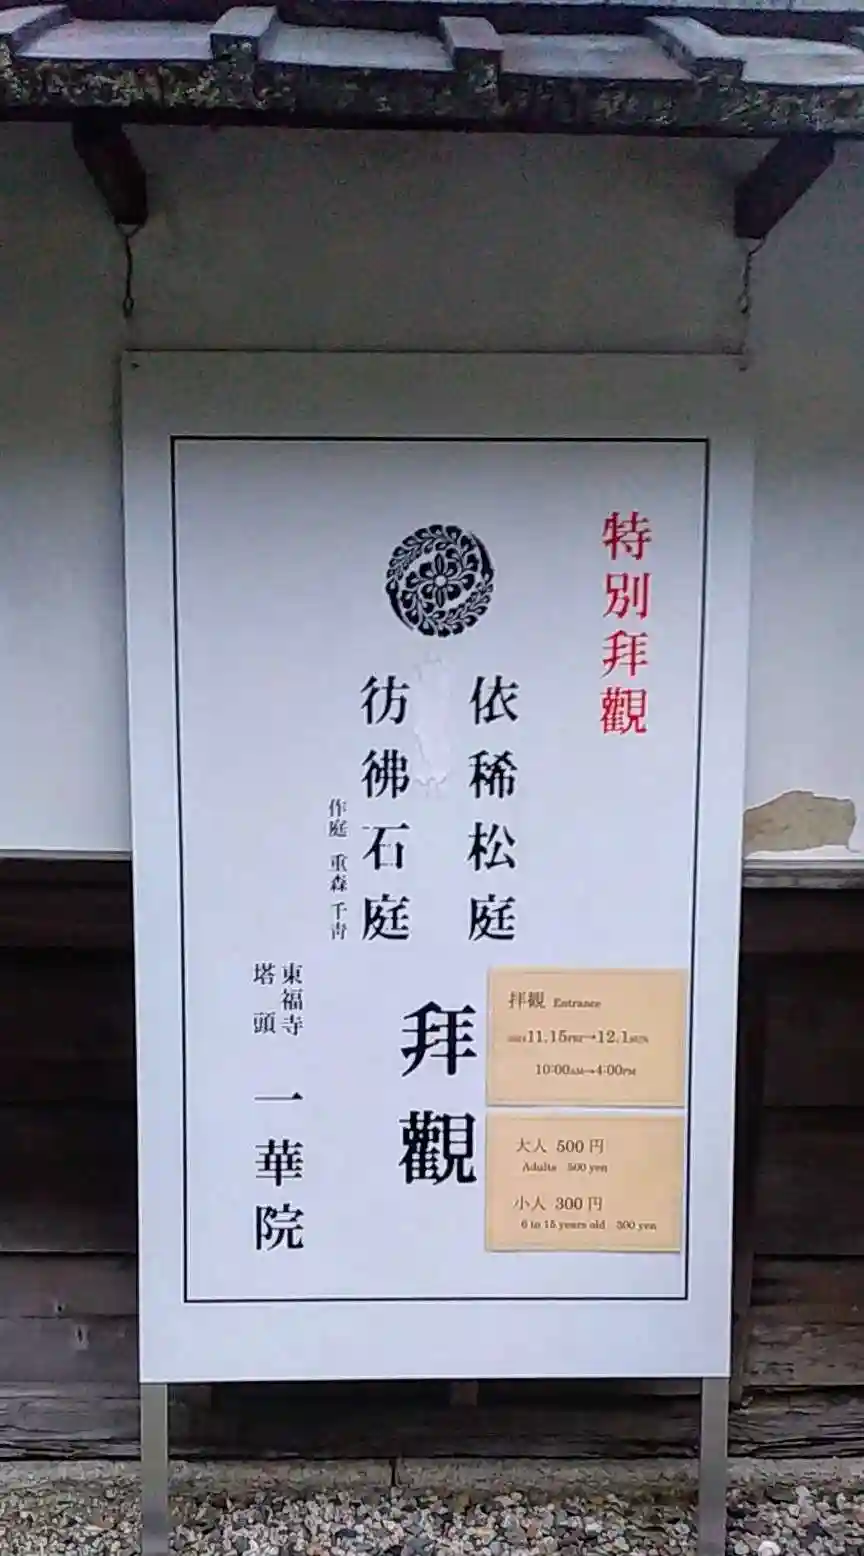 特別拜觀
依稀松庭
彷彿石庭
作庭 重森 千靑
拜觀
東福寺
塔頭
一華院
拝観 Entrance
11.15FRI→12.1SUN
10:00AM→4:00PM
大人 500円
Adults 500 yen
小人 300円
6 to 15 years old 300 yen